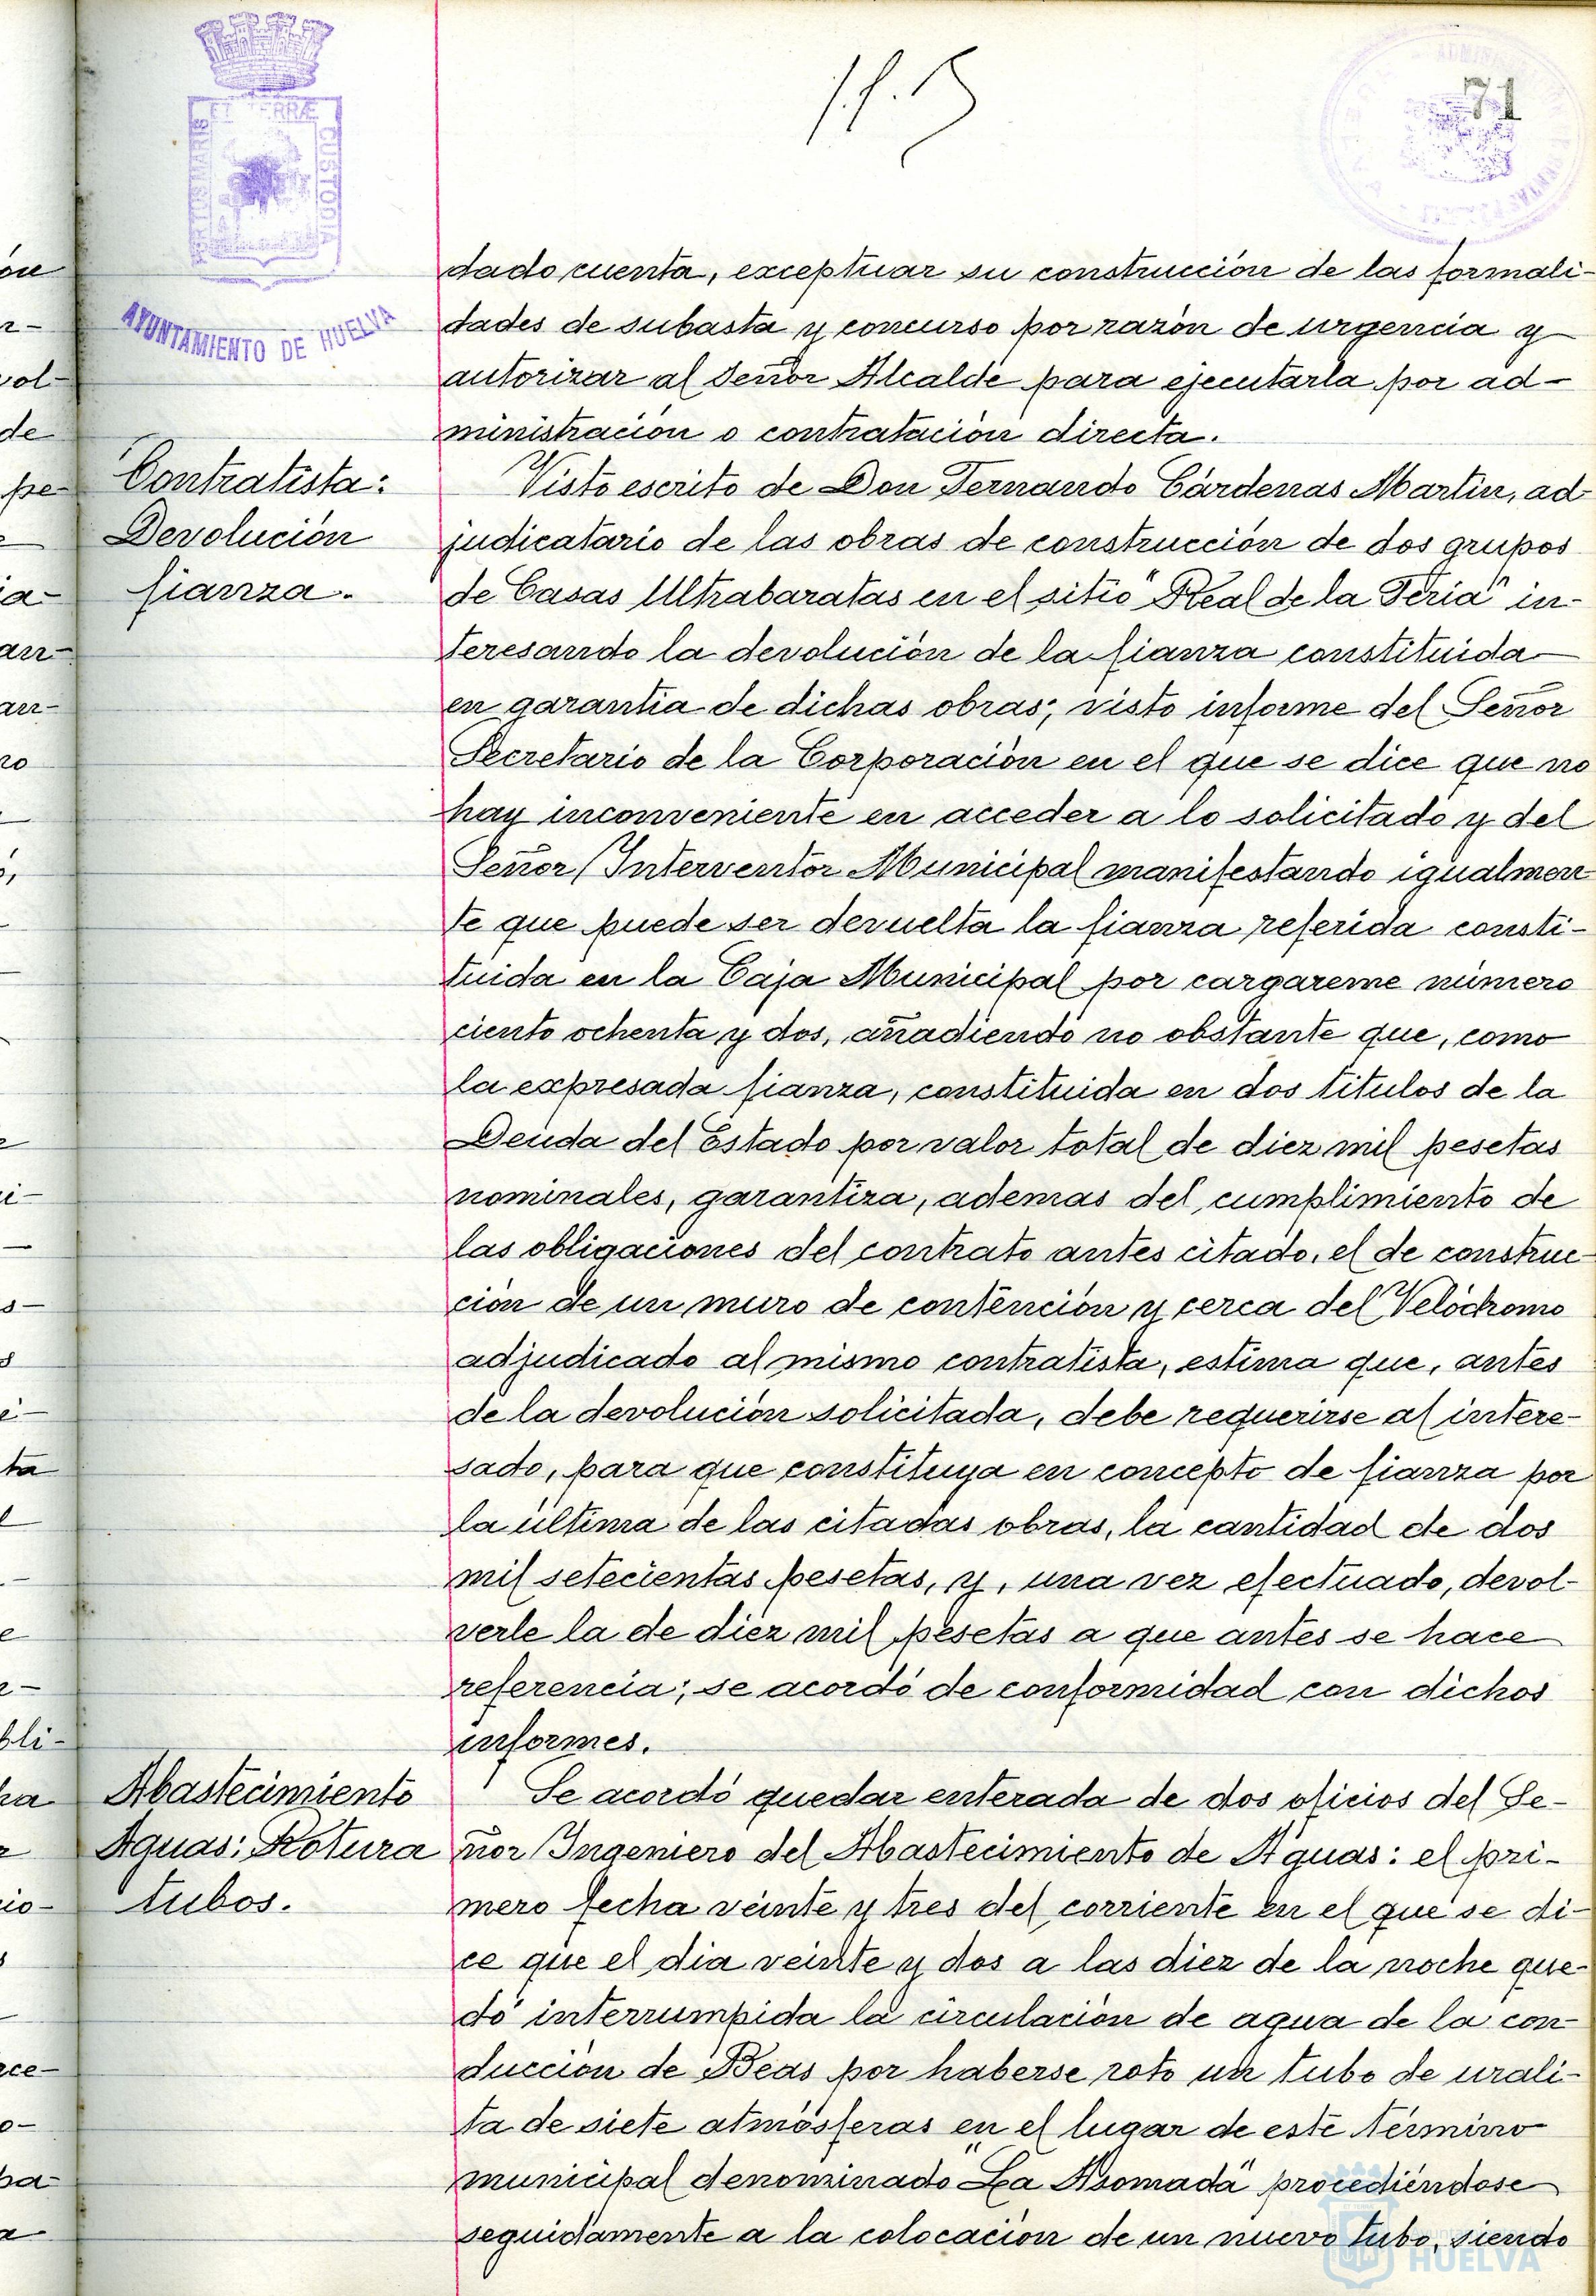 71
PORTUS MARIS ET TERRÆ CUSTODIA
AYUNTAMIENTO DE HUELVA
dado cuenta, exceptuar su construcción de las formali-
dades de subasta y concurso por razón de urgencia y
autorizar al Señor Alcalde para ejecutarla por ad-
ministración o contratación directa.
Contratista:
Devolución
fianza.
Visto escrito de Don Fernando Cárdenas Martin, ad-
judicatario de las obras de construcción de dos grupos
de Casas Ultrabaratas en el sitio "Real de la Feria" in-
teresando la devolución de la fianza constituida
en garantia de dichas obras; visto informe del Señor
Secretario de la Corporación en el que se dice que no
hay inconveniente en acceder a lo solicitado y del
Señor Interventor Municipal manifestando igualmen-
te que puede ser devuelta la fianza referida consti-
tuida en la Caja Municipal por cargareme número
ciento ochenta y dos, añadiendo no obstante que, como
la expresada fianza, constituida en dos titulos de la
Deuda del Estado por valor total de diez mil pesetas
nominales, garantiza, ademas del cumplimiento de
las obligaciones del contrato antes citado, el de construc-
ción de un muro de contención y cerca del Velódromo
adjudicado al mismo contratista, estima que, antes
de la devolución solicitada, debe requerirse al intere-
sado, para que constituya en concepto de fianza por
la última de las citadas obras, la cantidad de dos
mil setecientas pesetas, y, una vez efectuado, devol-
verle la de diez mil pesetas a que antes se hace
referencia; se acordó de conformidad con dichos
informes.
Abastecimiento
Aguas: Rotura
tubos.
Se acordó quedar enterada de dos oficios del Se-
ñor Ingeniero del Abastecimiento de Aguas: el pri-
mero fecha veinte y tres del corriente en el que se di-
ce que el dia veinte y dos a las diez de la noche que-
dó interrumpida la circulación de agua de la con-
ducción de Beas por haberse roto un tubo de urali-
ta de siete atmósferas en el lugar de este término
municipal denominado "La Asomada" procediéndose
seguidamente a la colocación de un nuevo tubo, siendo
HUELVA